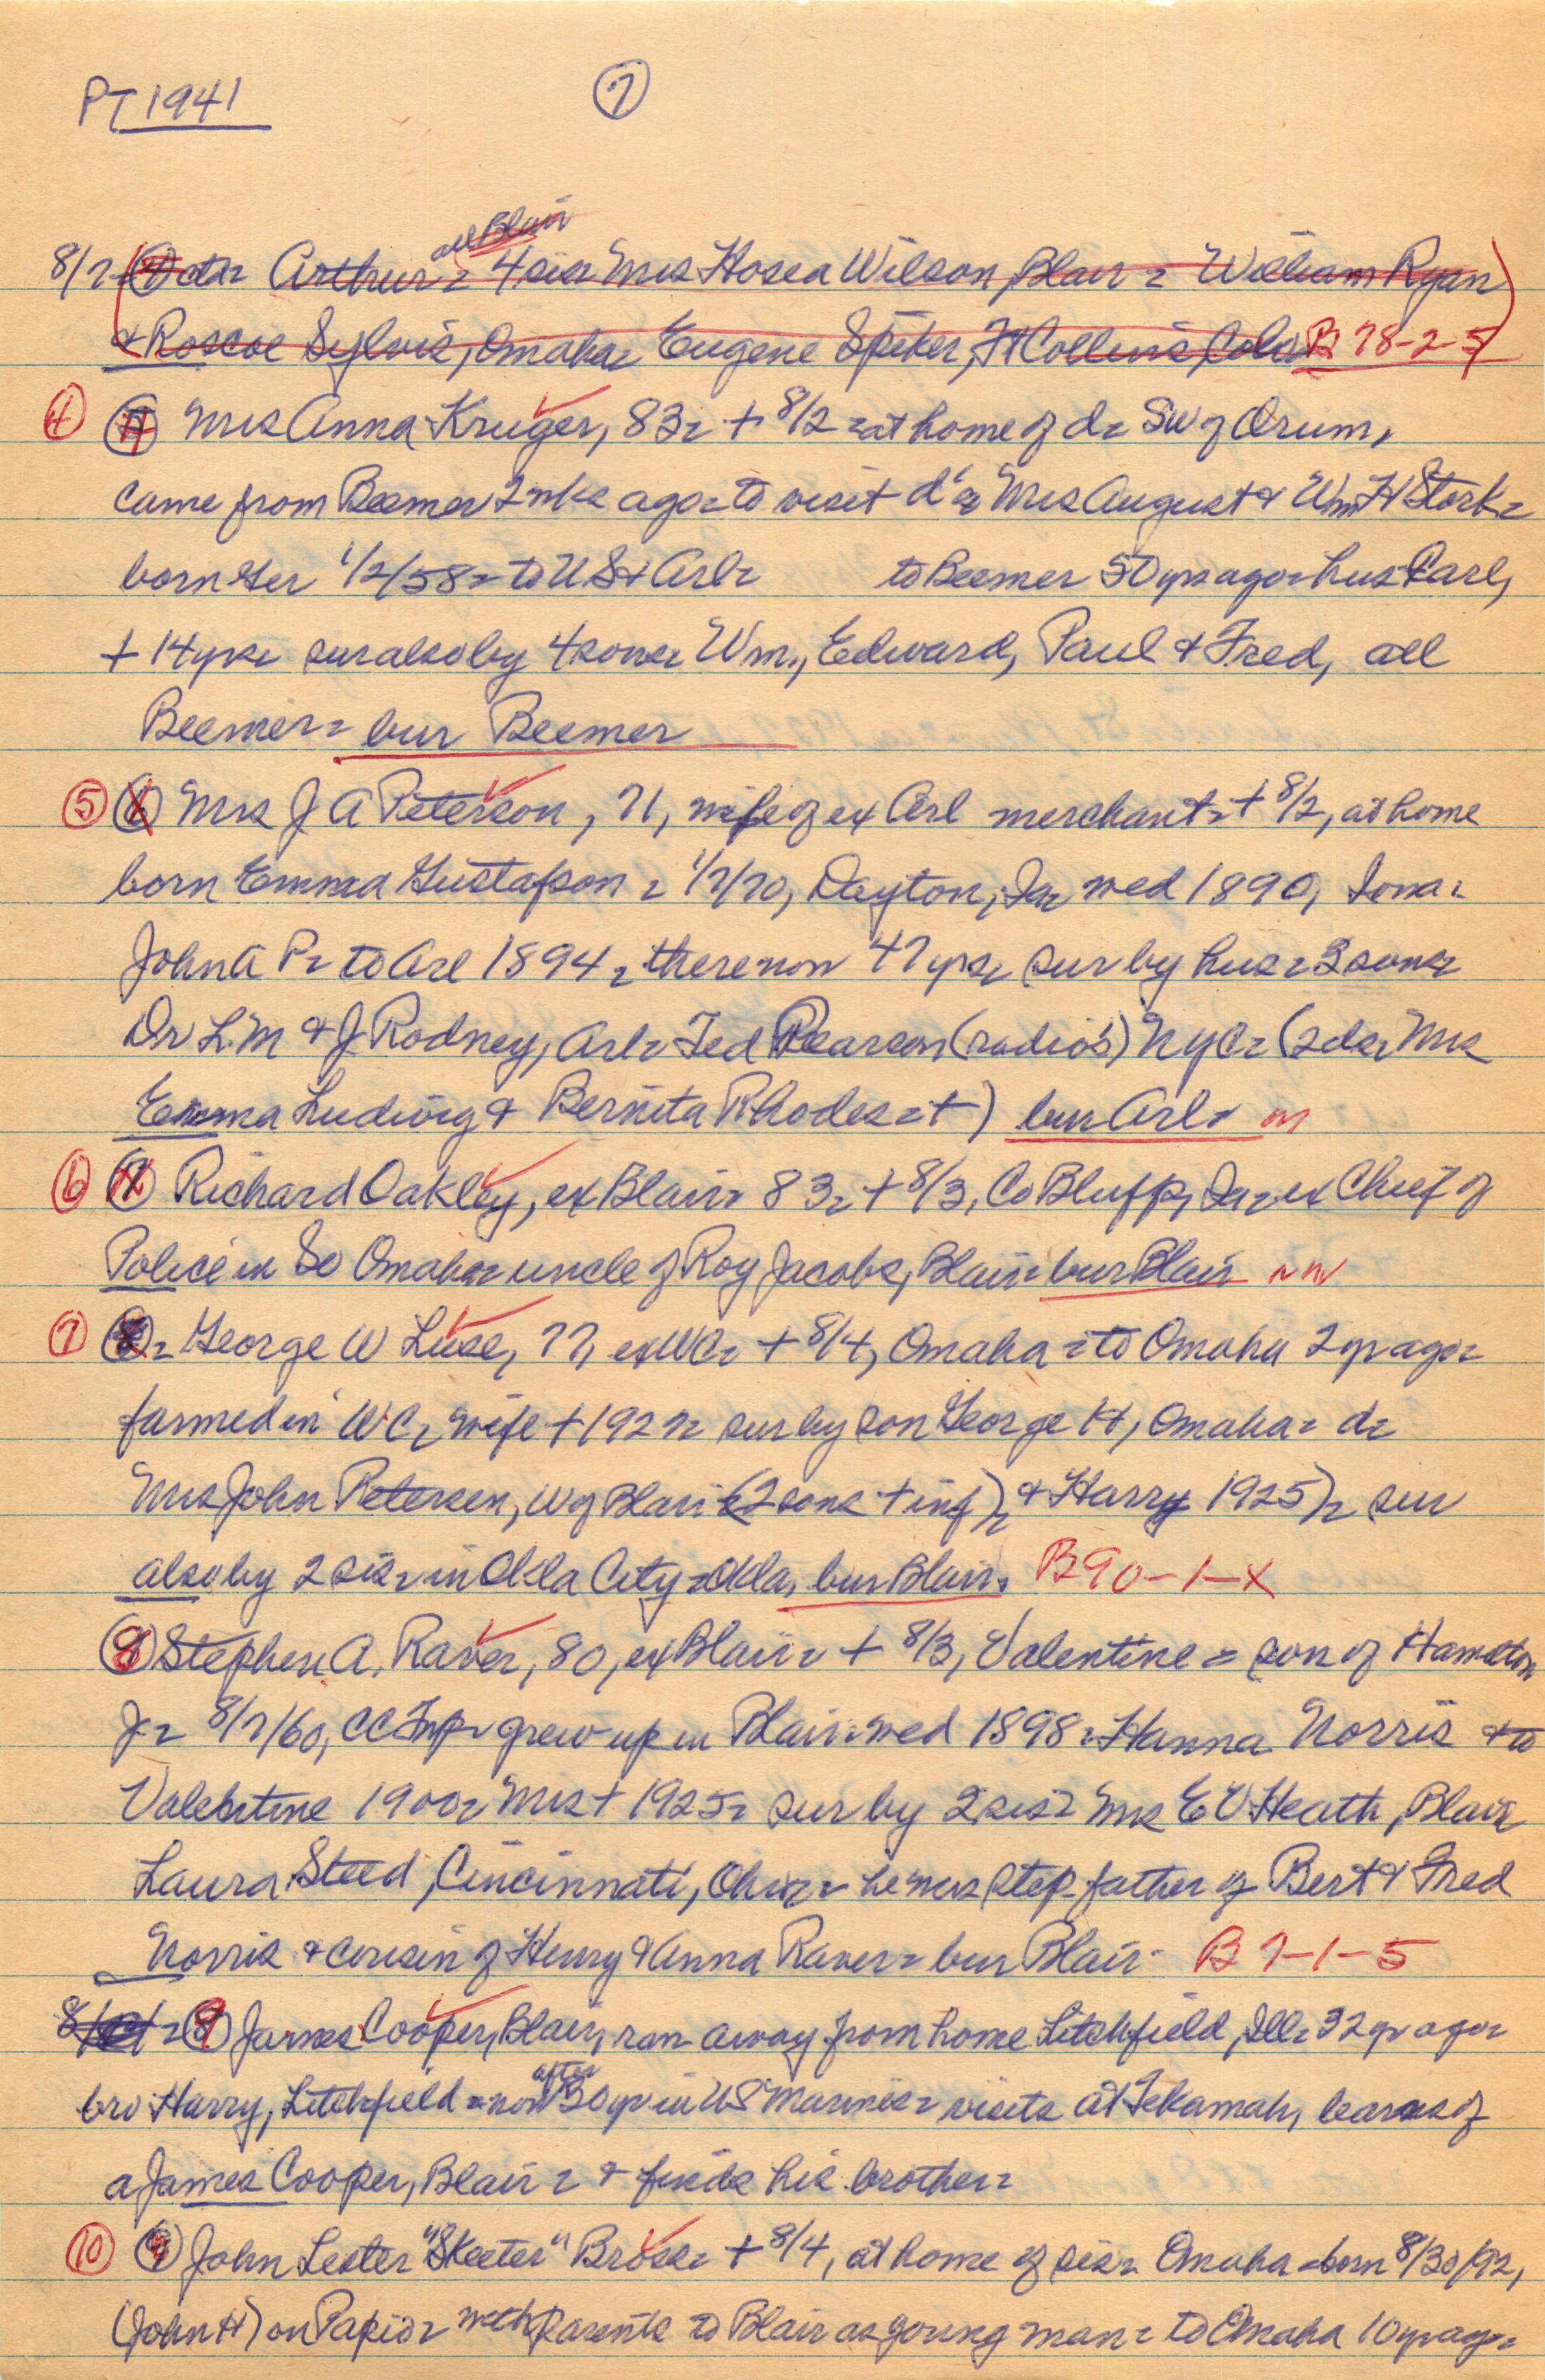 PT 1941 7
all Blair
8/7 Arthur = 4 sis = Mrs Hosea Wilson, Blair = William Ryan
& Roscoe Sylvis, Omaha = Eugene Spiker, Ft Collins, Colo B 78-2-5
4 Mrs Anna Kruger, 83 = + 8/2 = at home of d = SW of Orum,
came from Beemer 2 wks ago = to visit d's Mrs August & Wm H Stork =
born Ger 1/2/58 = to US & Arl = to Beemer 50 yrs ago = hus Carl,
+ 14 yrs = sur also by 4 sons = Wm., Edward, Paul & Fred, all
Beemer = bur Beemer
5 Mrs J A Peterson, 71, wife of ex Arl merchant = + 8/2, at home
born Emma Gustafson = 1/7/70, Dayton, Ia = wed 1890, Iowa =
John A P = to Arl 1894 = there now 47 yrs = sur by hus = 3 sons =
Dr L.M & J. Rodney, Arl = Ted Pearson (radio's) NYC = (2 ds = Mrs
Emma Ludwig & Bernita Rhodes = +) bur Arl =
6 Richard Oakley, ex Blair = 83 = + 8/3, Co Bluffs, Ia = ex Chief of
Police in So Omaha = uncle of Roy Jacobs, Blair = bur Blair
7 = George W Luse, 77, ex WC = + 8/4, Omaha = to Omaha 2 yr ago =
farmed in WC = wife + 192 = sur by son George H, Omaha = d =
Mrs John Petersen, W of Blair = (2 sons + inf) & Harry 1925) = sur
also by 2 sis = in Okla City = Okla, bur Blair. B 90-1-X
8 Stephen A. Raver, 80, ex Blair = + 8/3, Valentine = son of Hamilton
J = 8/7/60, CC Twp = grew up in Blair = wed 1898 = Hanna Norris & to
Valentine 1900 = Mrs + 1925 = sur by 2 sis = Mrs E V Heath, Blair
Laura Steed, Cincinnati, Ohio = he was step-father of Bert & Fred
Norris & cousin of Henry & Anna Raver = bur Blair - B 7-1-5
9 James Cooper, Blair, ran away from home Litchfield, Ill = 32 yr ago =
bro Harry, Litchfield = now after 30 yr in US Marines = visits at Tekamah, learns of
a James Cooper, Blair = & finds his brother =
10 John Lester "Skeeter" Bross = + 8/4, at home of sis = Omaha = born 8/30/92,
(John H) on Papio = with parents to Blair as young man = to Omaha 10 yr ago =